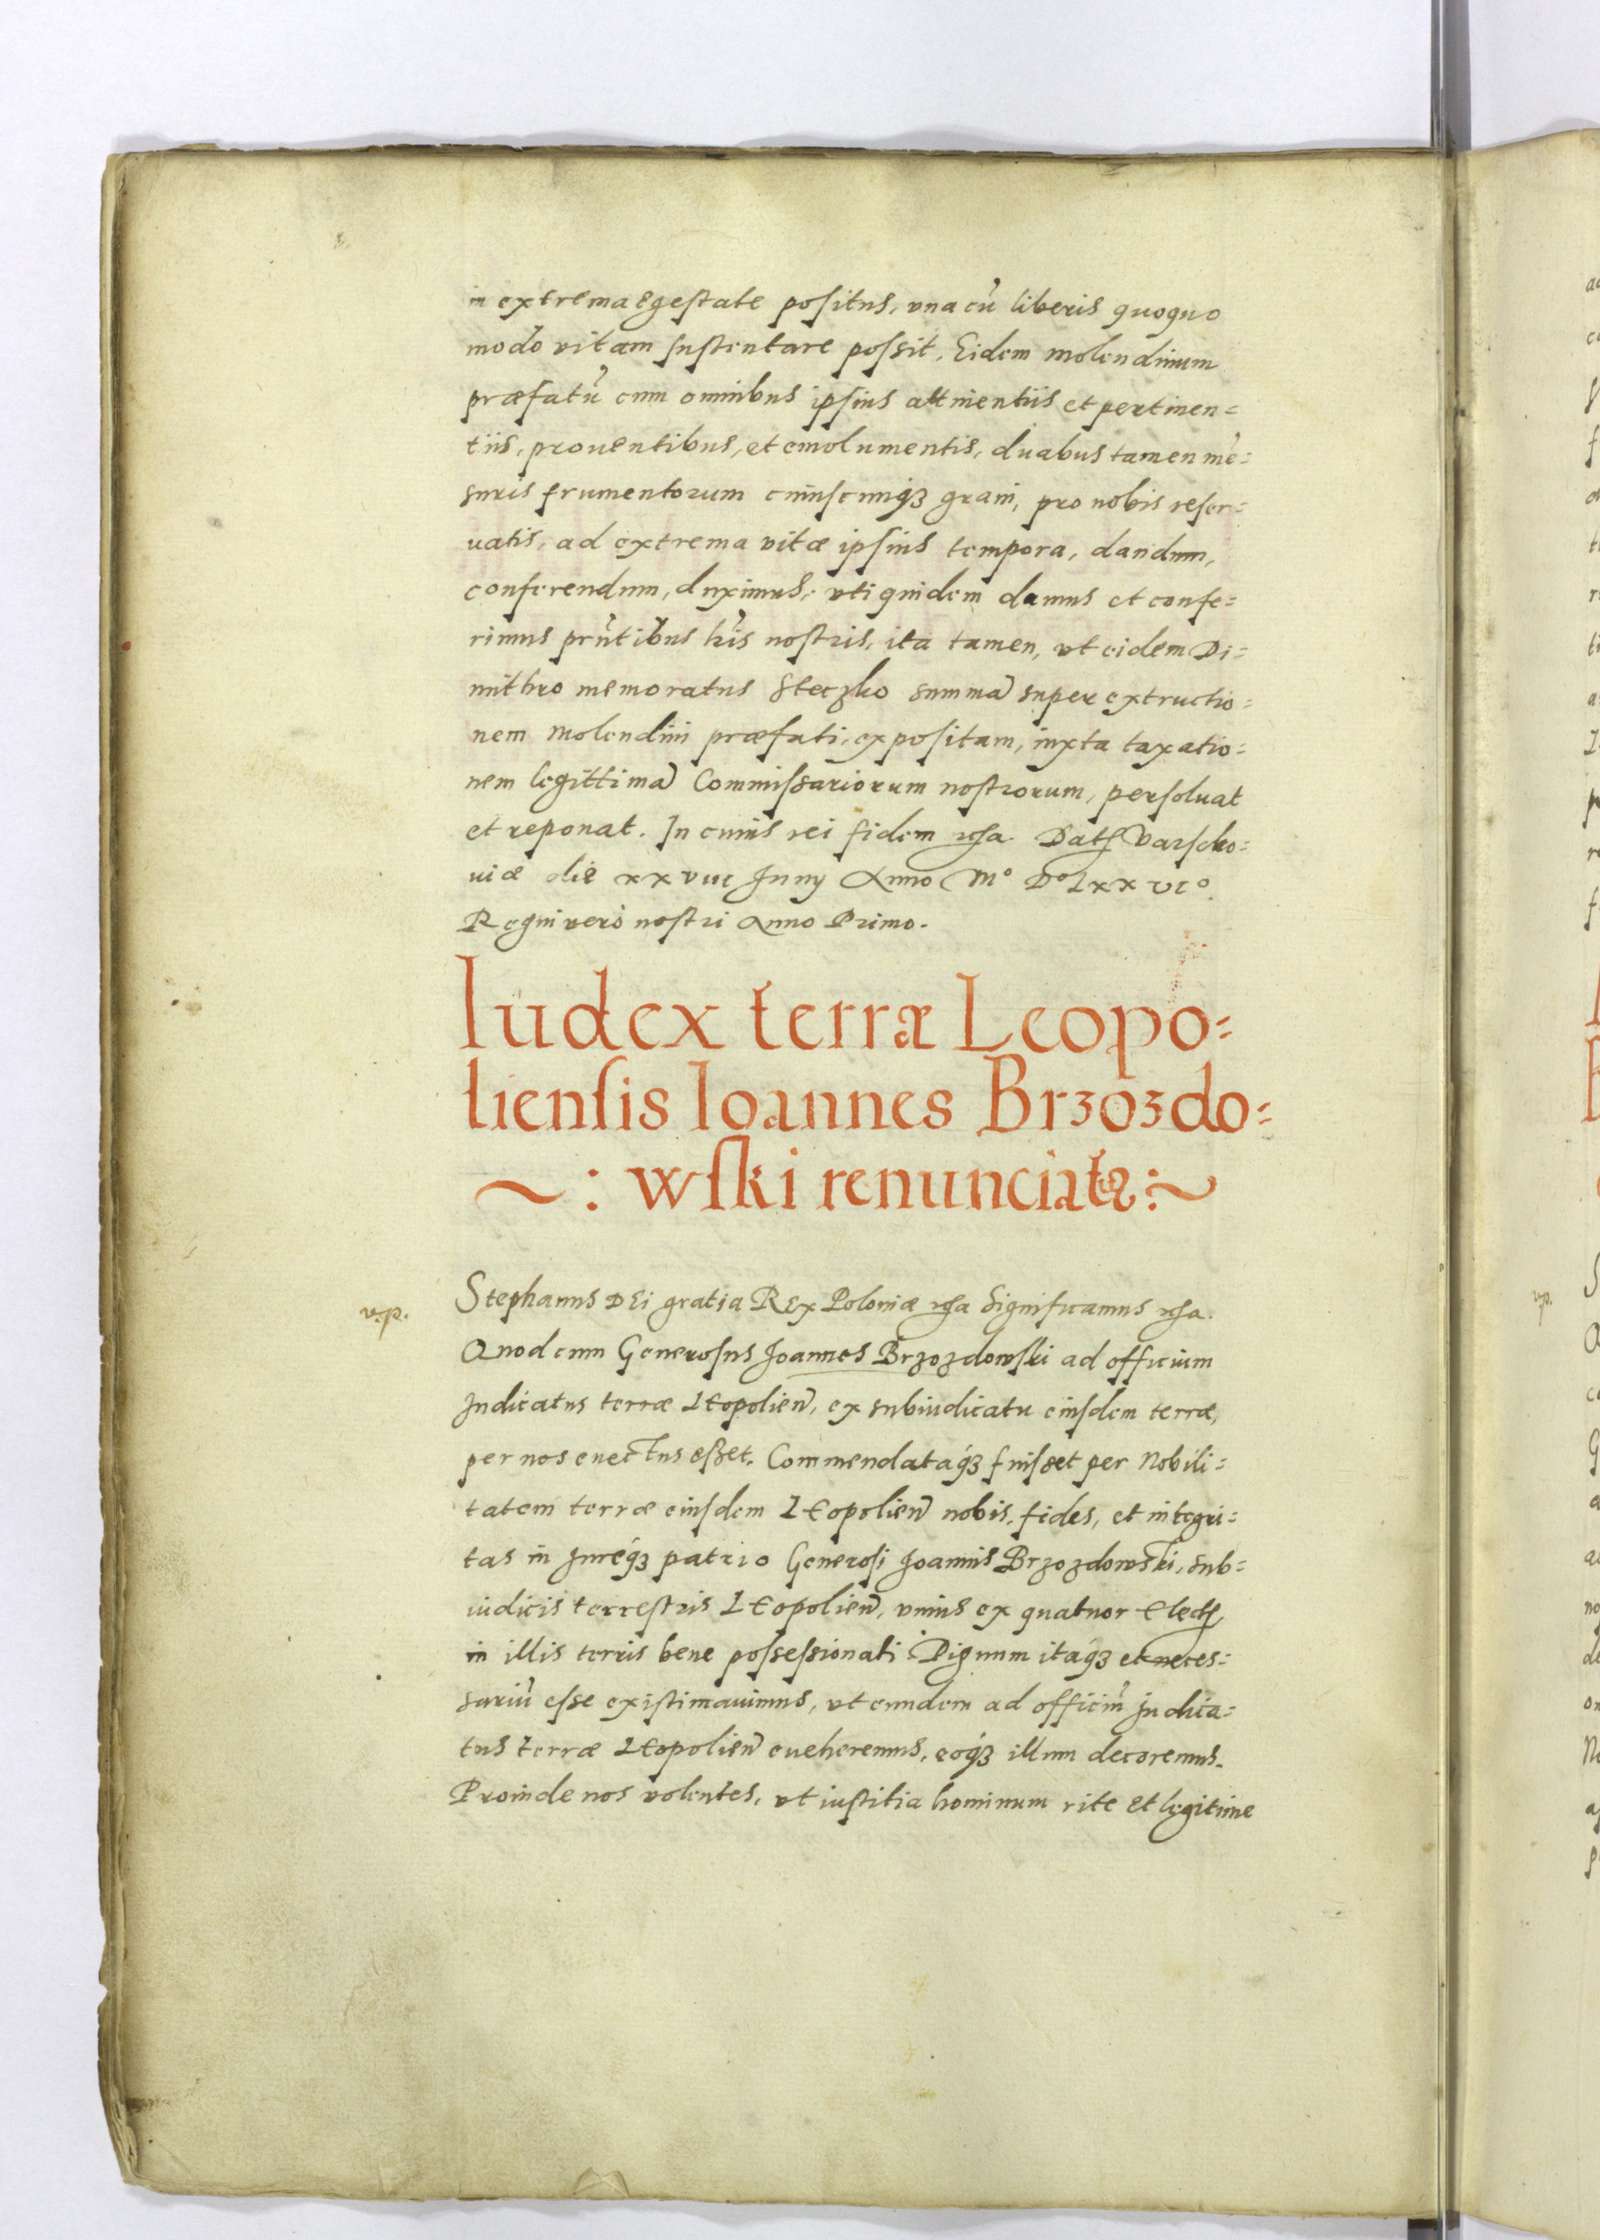 in extrema egestate positus, vna cũ liberis quoquo
modo vitam sustentare possit. Eidem molendinum
præfatũ cum omnibus ipsius attinentiis et pertinen=
tiis, prouentibus, et emolumentis, duabus tamen mẽ=
suris frumentorum cuiuscunqꝫ grani, pro nobis reser=
uatis, ad extrema vitæ ipsius tempora, dandum,
conferendum, duximus, vti quidem damus et confe=
rimus prñtibus lr̃is nostris, ita tamen, vt eidem Di=
mithro memoratus Steczko summã super extructio=
nem molendini præfati, expositam, iuxta taxatio=
nem legittimã Commissariorum nostrorum, persoluat
et reponat. In cuius rei fidem Datꝭ Varscho=
uiæ die xxviii Junij Anno Mº Dº Lxx viº.
Regni verò nostri Anno Primo.
Iudex terræ Leopo=
liensis Ioannes Brzozdo=
~: wski renunciatꝰ :~
v.p.
Stephanus DEi gratia REx Poloniæ Significamus
Quod cum Generosus Joannes Brzozdowski ad officium
Judicatus terræ Leopolieñ, ex subiudicatu eiusdem terræ,
per nos euectus esset. Commendataqꝫ fuisset per Nobili=
tatem terræ eiusdem Leopolieñ nobis, fides, et integri=
tas in Jureqꝫ patrio Generosi Joannis Brzozdowski, sub=
iudicis terrestris Leopolieñ, vnius ex quatuor Electꝭ
in illis terris bene possessionati. Dignum itaqꝫ et neces=
sariũ esse existimauimus, vt eundem ad officiũ Judica=
tus terræ Leopolieñ eueheremus, eoqꝫ illum decoremus.
Proinde nos volentes, vt iustitia hominum rite et legitime